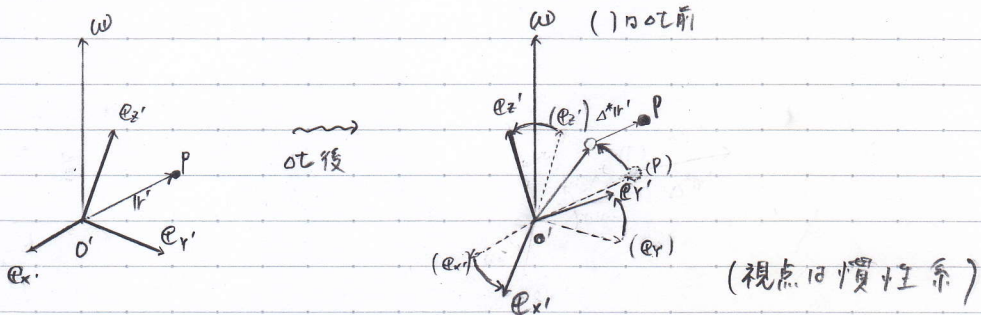 ω
e_z'
P
r'
O'
e_y'
e_x'
Δt後
ω
( )はΔt前
e_z'
(e_z')
Δ*r'
P
(P)
e_y'
O'
(e_y)
(e_x')
e_x'
(視点は慣性系)